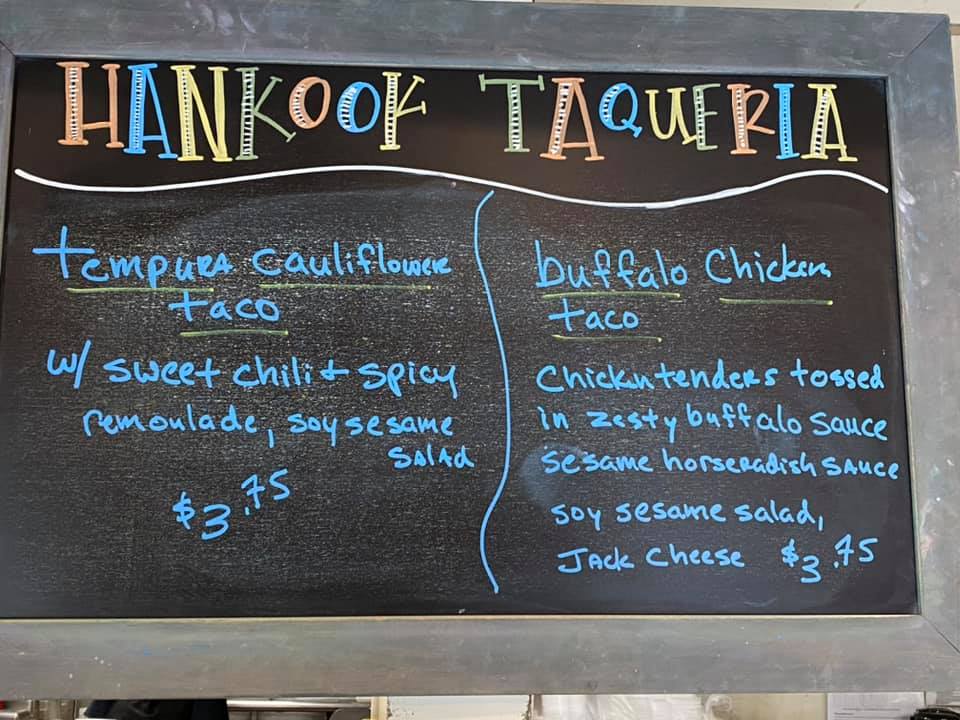 HANKOOK TAQUERIA
tempura cauliflower
taco
w/ sweet chili + spicy
remoulade, soy sesame
salad
$3.75
buffalo chicken
taco
Chicken tenders tossed
in zesty buffalo sauce
sesame horseradish sauce
soy sesame salad,
Jack Cheese $3.75